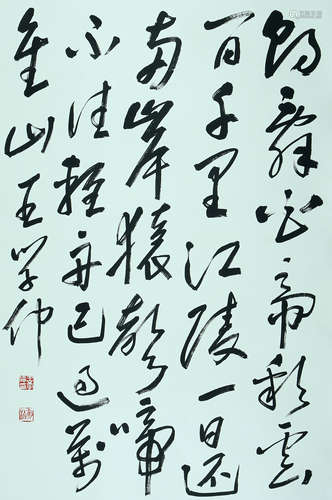 朝辞白帝彩云
百千里江陵一日还
两岸猿声啼
不住轻舟已过万
重山王学仲